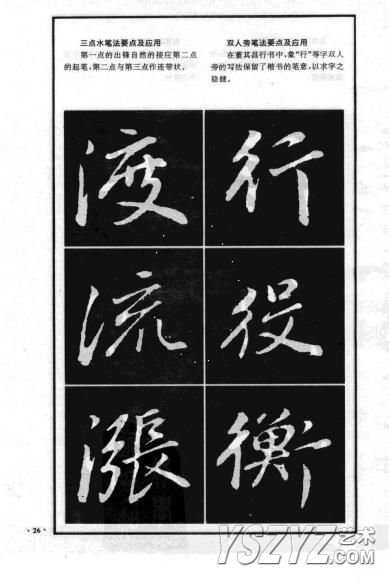 三点水笔法要点及应用
第一点的出锋自然的接应第二点
的起笔,第二点与第三点作连带状。
双人旁笔法要点及应用
在董其昌行书中,象“行”等字双人
旁的写法保留了楷书的笔意,以求字之
稳健。
渡 行
流 役
漲 衡
·26·
YSZYZ艺术
.COM